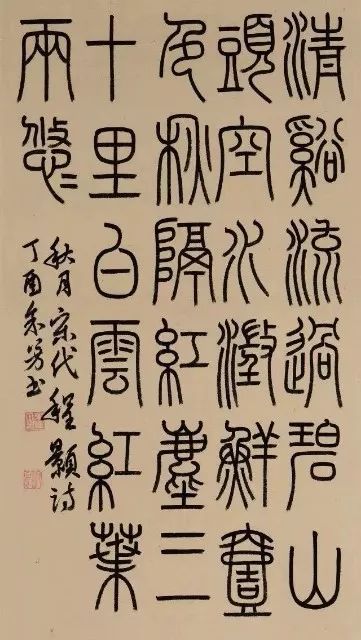 清谿流過碧山
頭空水澂鮮壹
色秋隔紅塵三
十里白雲紅葉
兩悠〻
秋月宋代程顥詩
丁酉